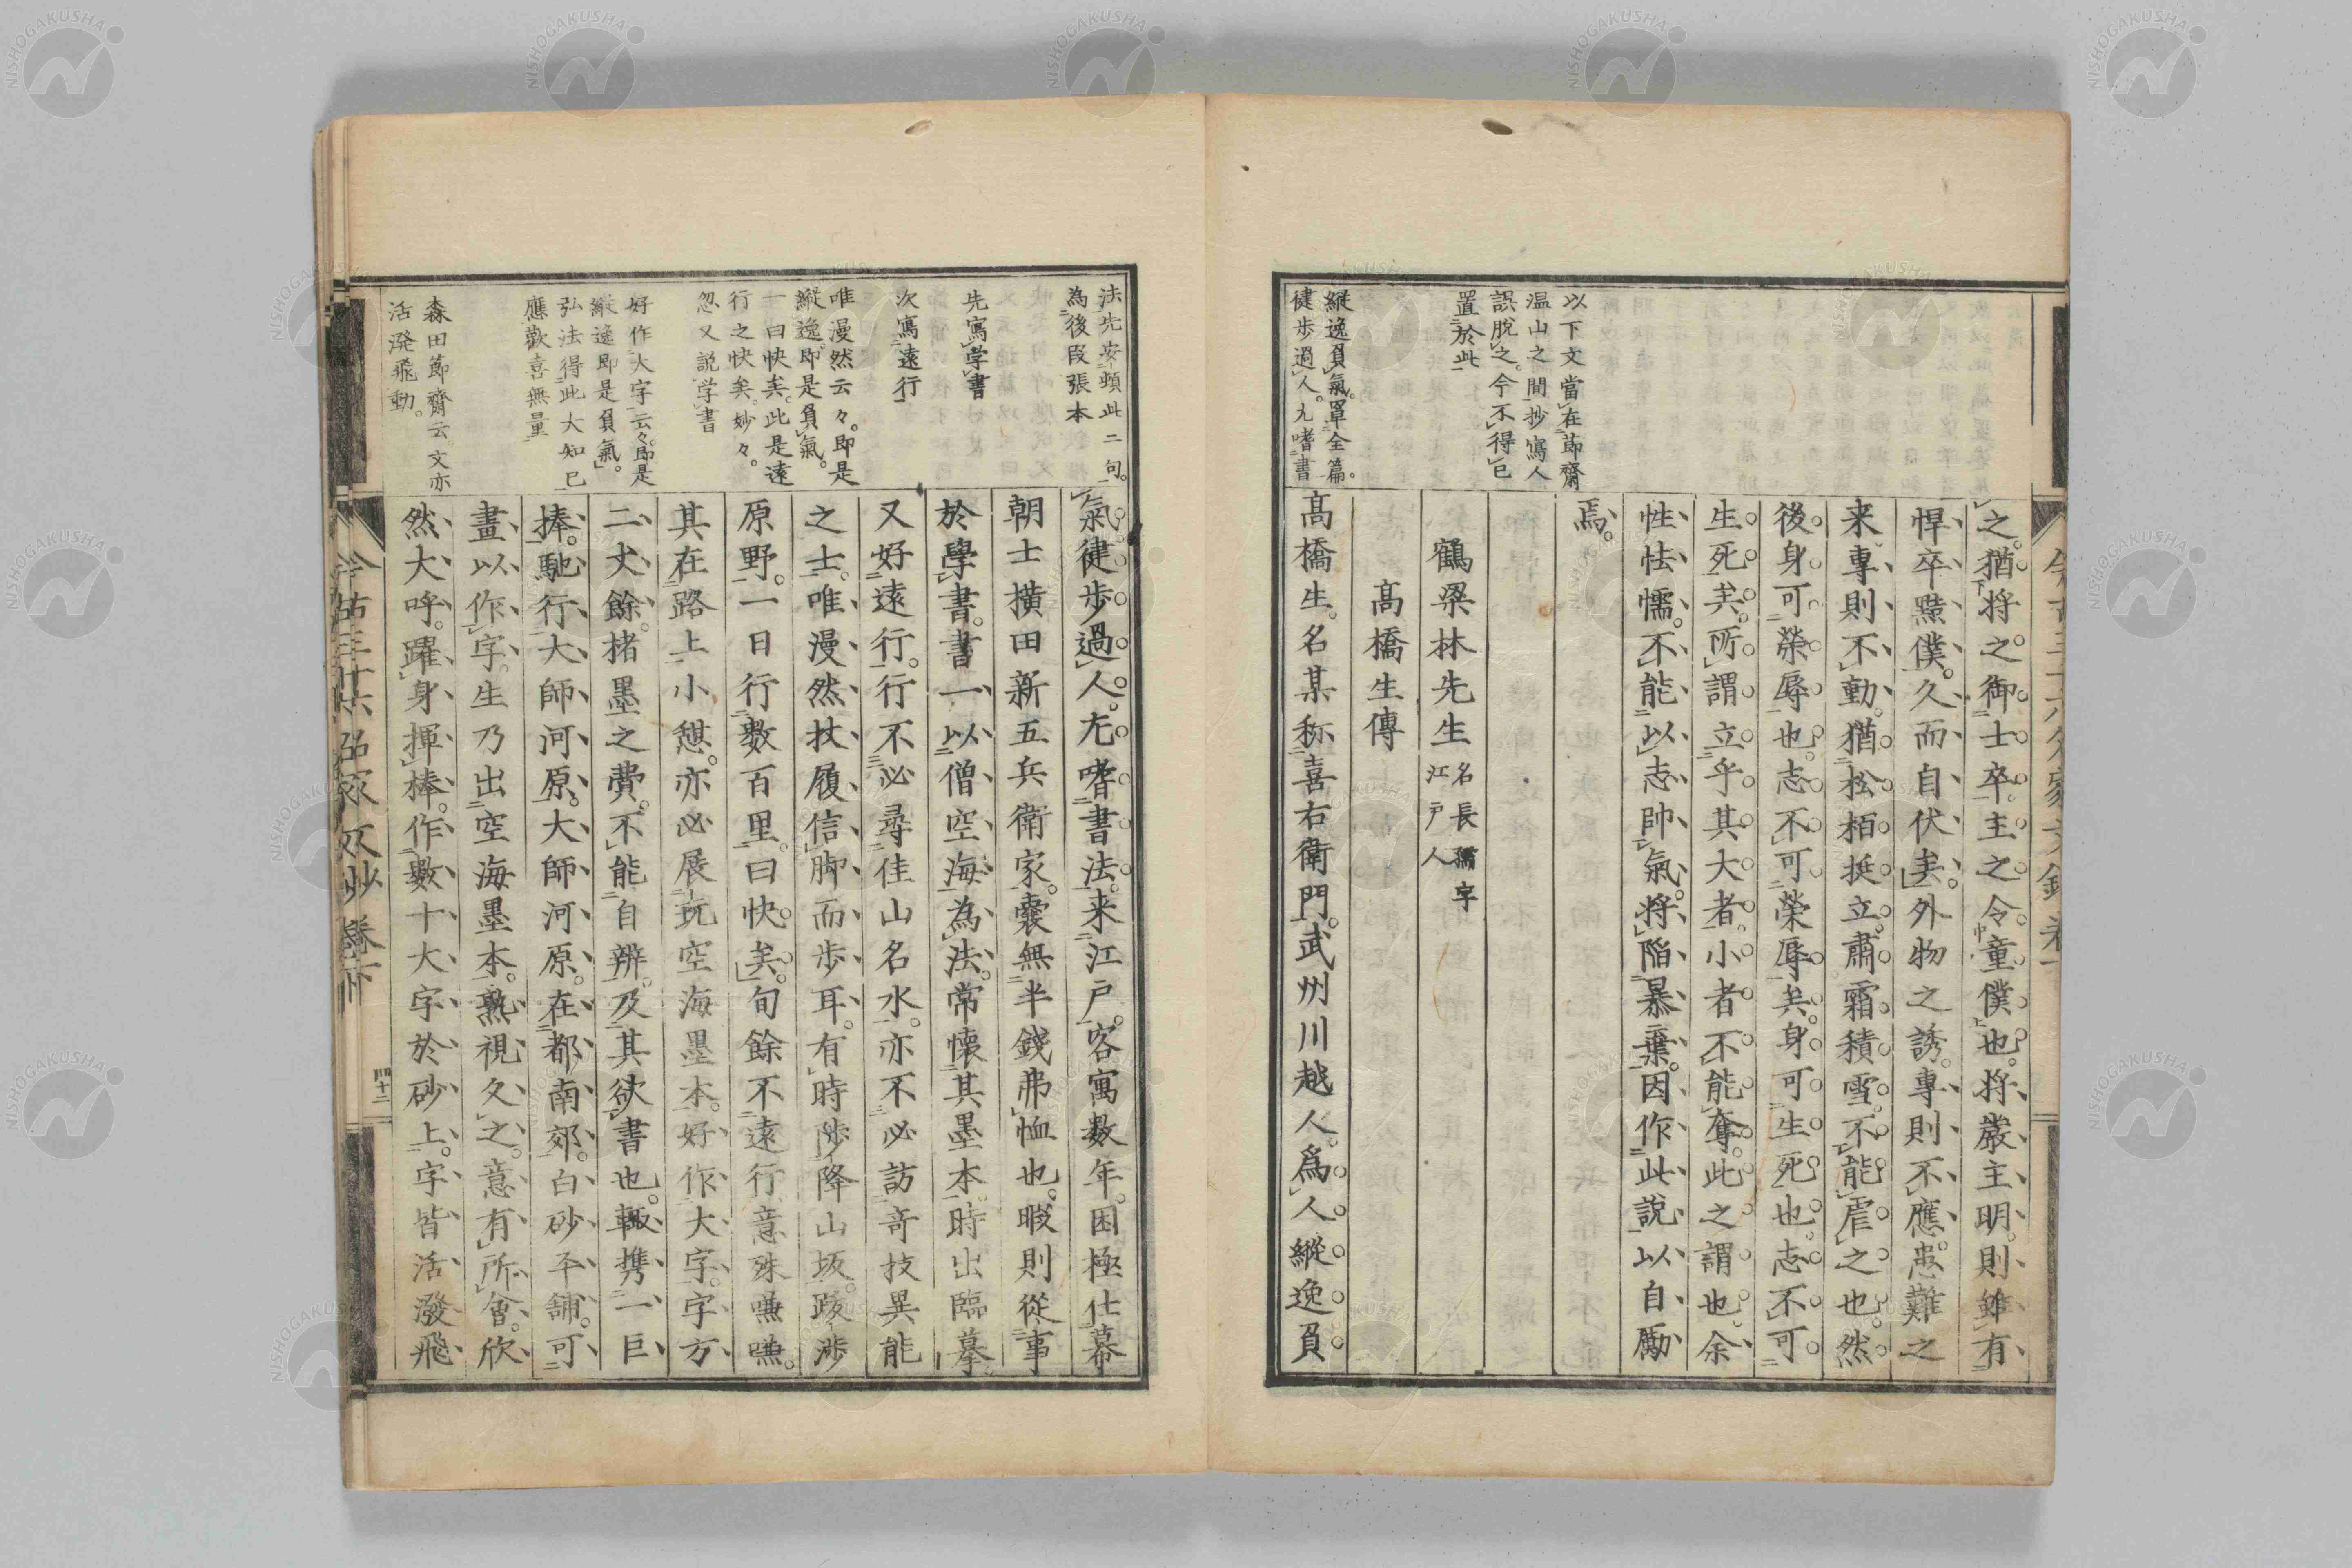 之。猶將之御士卒。主之令童僕也。将嚴主明。則雖有
悍卒黠僕。久而自伏矣。外物之誘。專則不應。患難之
来。專則不動。猶松栢挺立。肅霜積雪。不能虐之也。然
後身可榮辱也。志不可榮辱矣。身可生死也。志不可
生死矣。所謂立乎其大者。小者不能奪。此之謂也。余
性怯懦。不能以志帥氣。将陷暴棄。因作此説。以自勵
焉。
以下文當在莭齋
温山之間抄寫人
誤脱之。今不得已
置於此
鶴梁林先生
名長孺字
江戸人
髙橋生傳
縦逸負氣。罩全篇。
健歩過人。尤嗜書
髙橋生。名某。称喜右衛門。武州川越人。爲人縦逸負
法先安頓此二句。
為後段張本
氣。健歩過人。尤嗜書法。来江戸。客寓数年。困極。仕幕
朝士横田新五兵衛家。嚢無半錢。弗恤也。暇則從事
先寫学書
於學書。書一以僧空海為法。常懐其墨本。時出臨摹。
次寫遠行
又好遠行。行不必尋佳山名水。亦不必訪奇技異能
唯漫然云々。即是
縦逸。即是負氣。
一曰快矣。此是遠
行之快矣。妙々。
忽又説学書
之士。唯漫然扙履信脚而歩耳。有時陟降山坂。跋渉
原野。一日行數百里。曰快矣。旬餘不遠行。意殊嗛嗛。
其在路上小憇。亦必展玩空海墨本。好作大字。字方
好作大字云々。即是
縦逸即是負氣。
弘法得此大知已
應歡喜無量
二丈餘。楮墨之費。不能自辨。及其欲書也。輙携一巨
捧。馳行大師河原。大師河原。在都南郊。白砂平舗。可
畫以作字。生乃出空海墨本。熟視久之。意有所會。欣
森田莭齋云。文亦
活溌飛動。
然大呼。躍身揮棒。作數十大字於砂上。字皆活潑飛
今古三十六名家文抄卷下
四十二